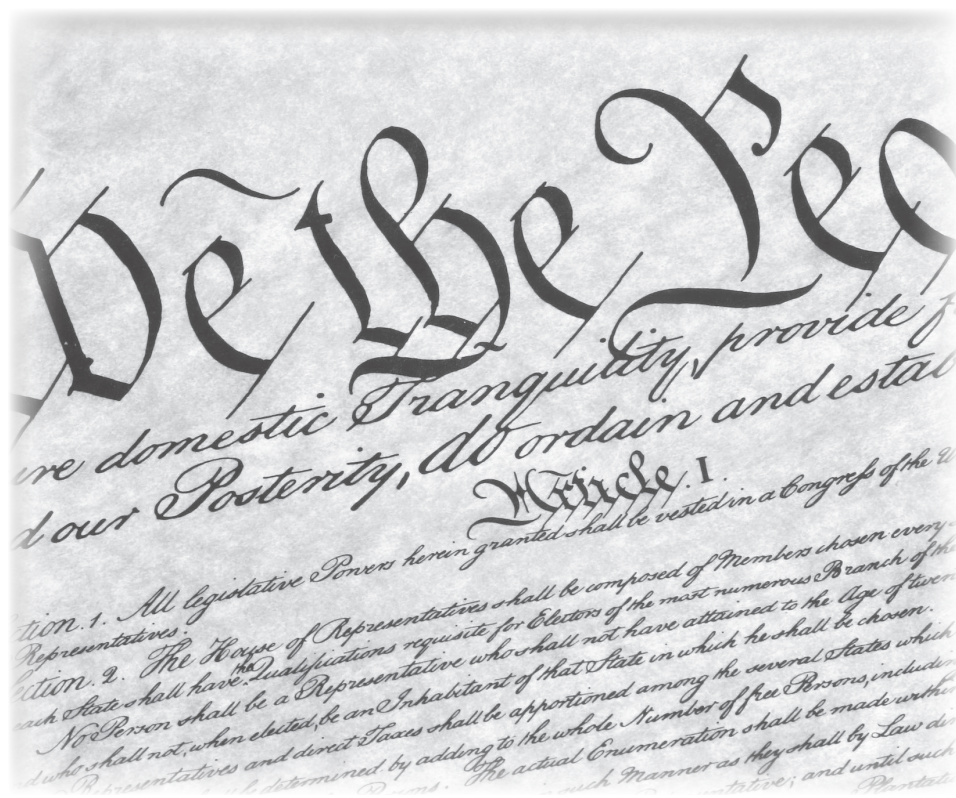 We the Peo
ure domestic Tranquility, provide f
d our Posterity, do ordain and estab
Article. I.
ction. 1. All legislative Powers herein granted shall be vested in a Congress of the U
Representatives.
ection. 2. The House of Representatives shall be composed of Members chosen every
each State shall have the Qualifications requisite for Electors of the most numerous Branch of the
No Person shall be a Representative who shall not have attained to the Age of twen
d who shall not, when elected, be an Inhabitant of that State in which he shall be chosen.
Representatives and direct Taxes shall be apportioned among the several States which
determined by adding to the whole Number of free Persons, includin
Persons. The actual Enumeration shall be made within
such Manner as they shall by Law dir
and until such
Plantati